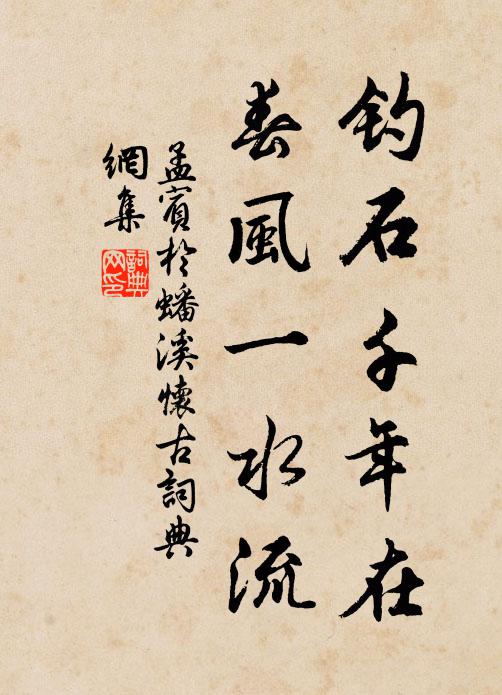 钓石千年在
春風一水流
孟賓於蟠溪懷古詞典
網集
詞典
网印